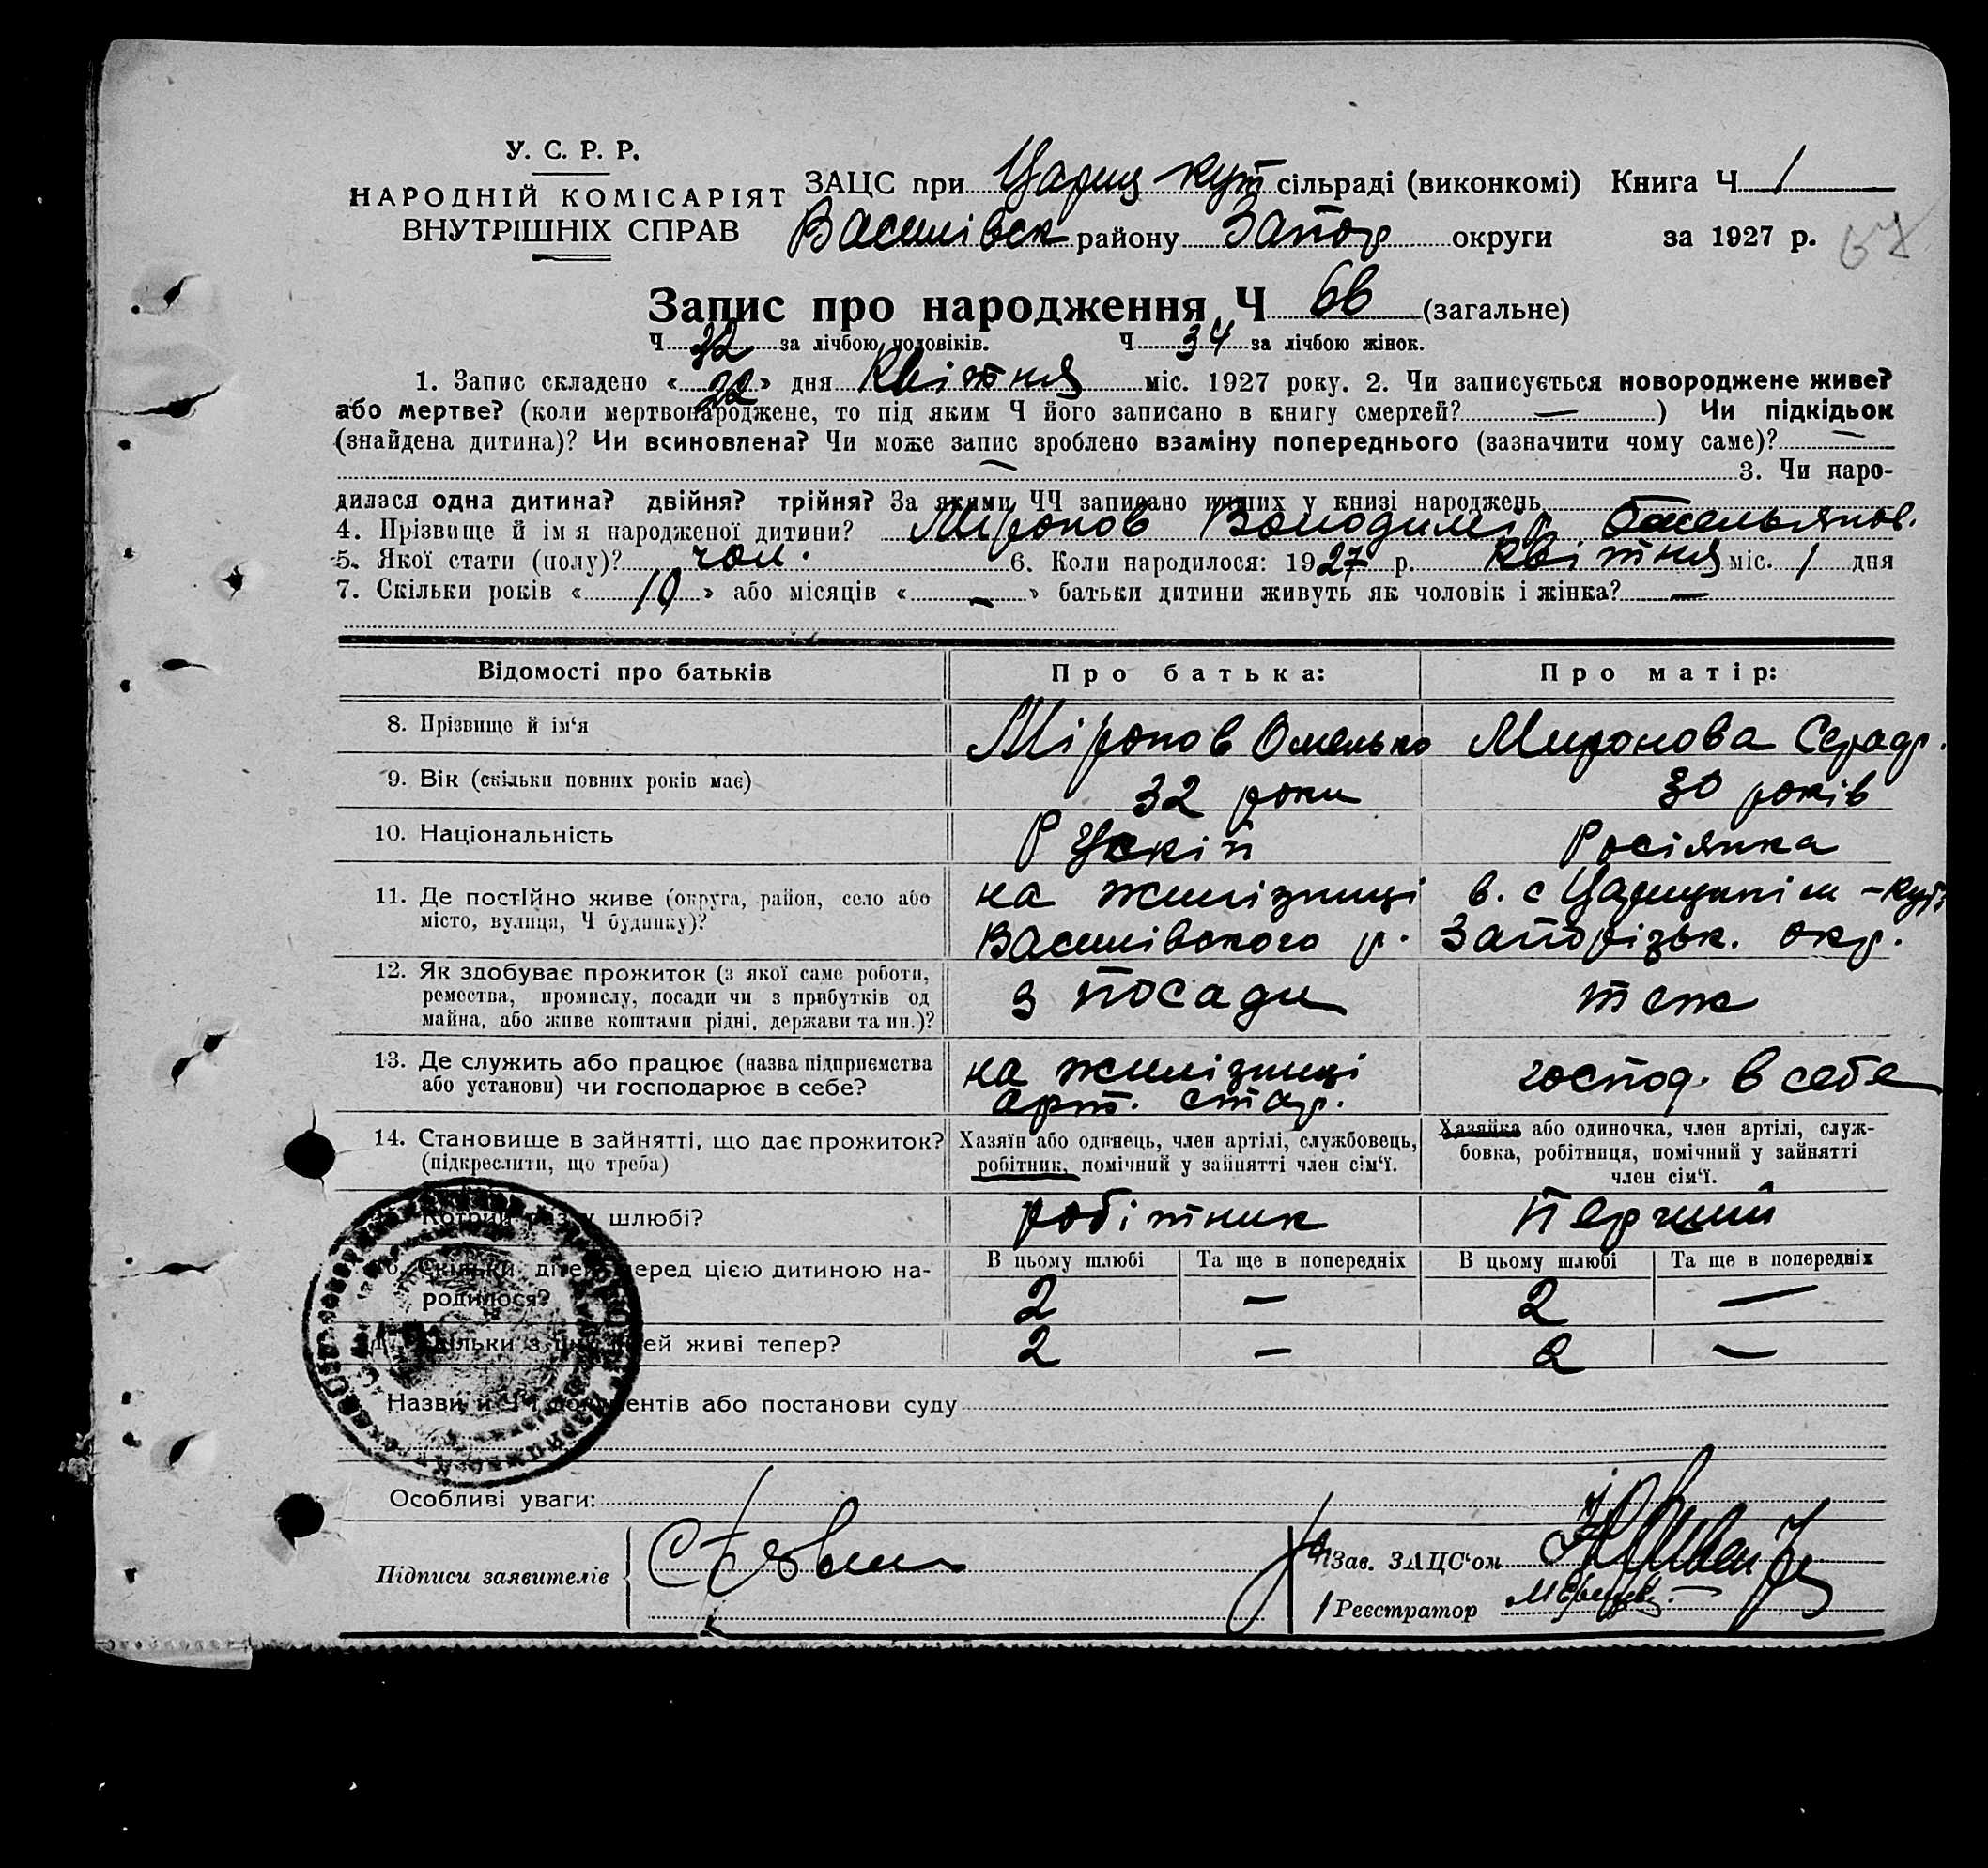 У. С. Р. Р.
НАРОДНІЙ КОМІСАРІЯТ
ВНУТРІШНІХ СПРАВ
ЗАЦС при Цариц кут сільраді (виконкомі) Книга Ч 1
Василівск району Запор округи за 1927 р. 67
Запис про народження Ч 66 (загальне)
Ч 32 за лічбою чоловіків. Ч 34 за лічбою жінок.
1. Запис складено « 22 » дня Квітня міс. 1927 року. 2. Чи записується новороджене живе?
або мертве? (коли мертвонароджене, то під яким Ч його записано в книгу смертей? — ) Чи підкідьок
(знайдена дитина)? Чи всиновлена? Чи може запис зроблено взаміну попереднього (зазначити чому саме)? —
— 3. Чи наро-
дилася одна дитина? двійня? трійня? За якими ЧЧ записано инших у книзі народжень
4. Прізвище й ім я народженої дитини? Міронов Володимір Омельянов.
5. Якої стати (полу)? чол. 6. Коли народилося: 1927 р. Квітня міс. 1 дня
7. Скільки років « 10 » або місяців « — » батьки дитини живуть як чоловік і жінка? —
Відомості про батьків Про батька: Про матір:
8. Прізвище й ім‘я Міронов Омелько Миронова
9. Вік (скільки повних років має) 32 роки 30 років
10. Національність Рускій Росіянка
11. Де постійно живе (округа, район, село або на жилізниці в. с Царицинім - Куті
місто, вулиця, Ч будинку)? Василівського р. Запорізьк. окр.
12. Як здобуває прожиток (з якої саме роботи,
ремества, промислу, посади чи з прибутків од з посади теж
майна, або живе коштами рідні, держави та ин.)?
13. Де служить або працює (назва підприємства на жилізниці господ. в себе
або установи) чи господарює в себе? арт. стар.
14. Становище в зайнятті, що дає прожиток? Хазяїн або одинець, член артілі, службовець, Хазяйка або одиночка, член артілі, служ-
(підкреслити, що треба) робітник, помічний у зайнятті член сім‘ї. бовка, робітниця, помічний у зайнятті
член сім‘ї.
Котрий раз у шлюбі? робітник Перший
16. Скільки дітей перед цією дитиною на- В цьому шлюбі Та ще в попередніх В цьому шлюбі Та ще в попередніх
родилося? 2 — 2 —
17. Скільки з цих дітей живі тепер? 2 — 2 —
Назви й ЧЧ документів або постанови суду
Особливі уваги:
Підписи заявителів Зав. ЗАЦС‘ом
Реєстратор